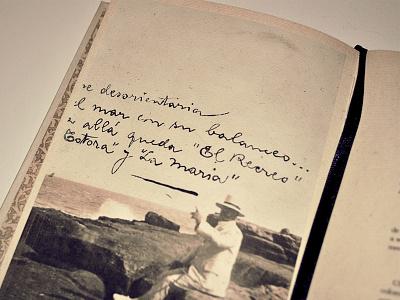 e desorientaría
l mar con su balanceo...
allá queda "El Recreo"
Totora" y "La maría"